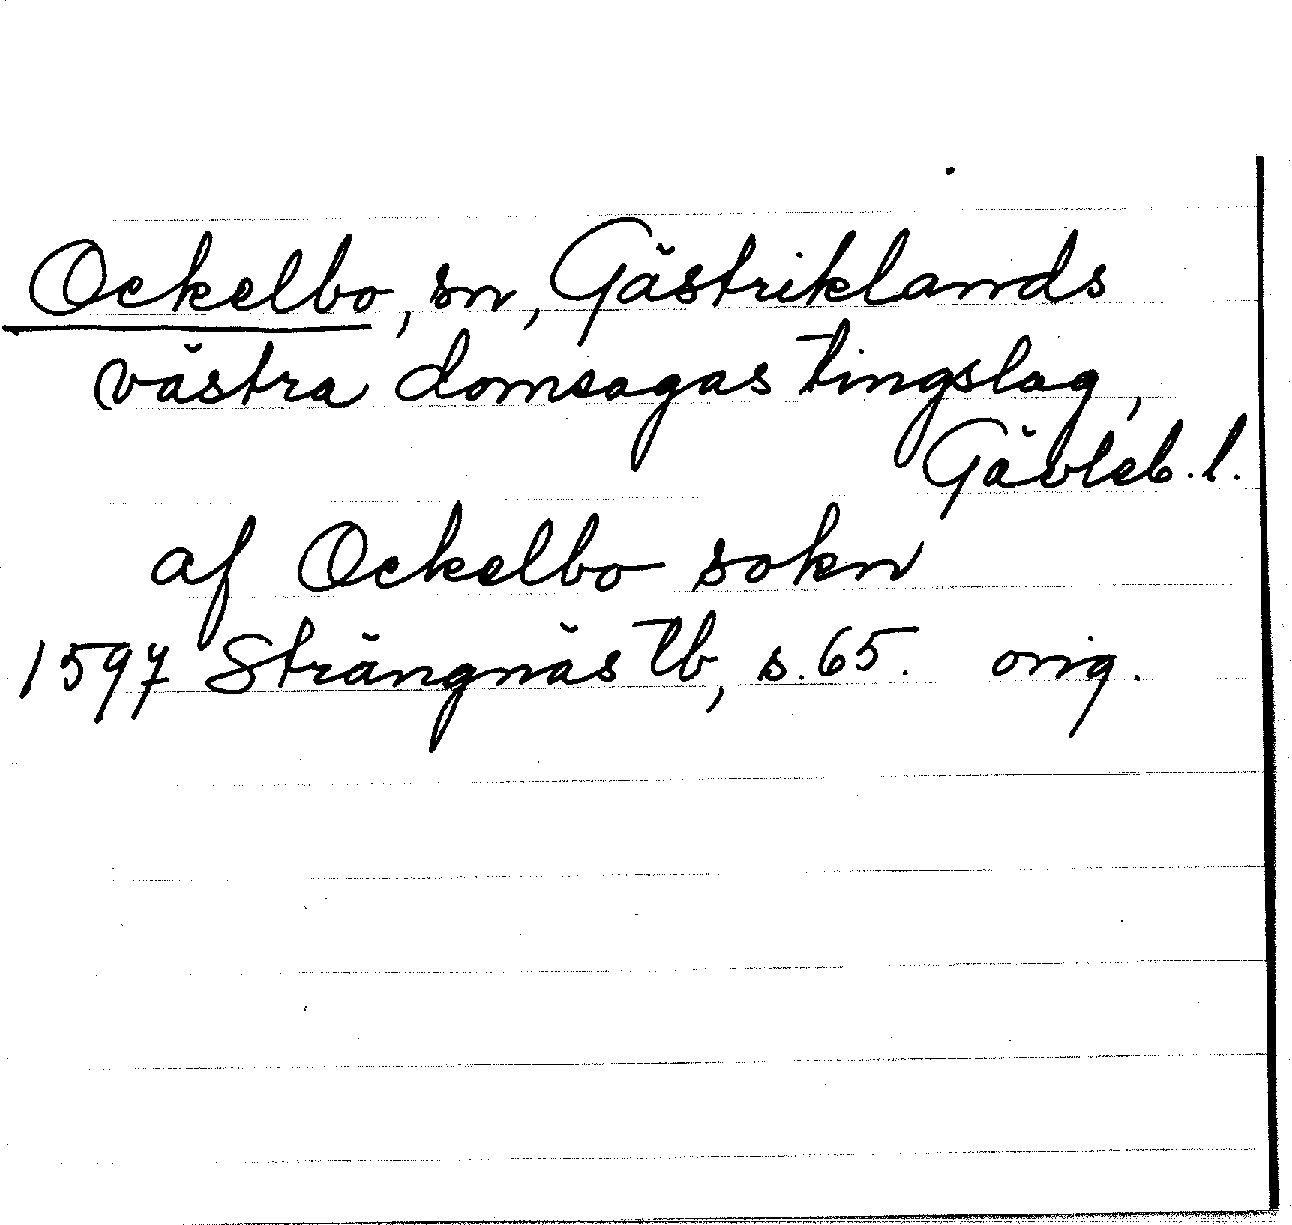 Ockelbo, sn, Gästriklands
västra domsagas tingslag,
Gävleb. l.
af Ockelbo sokn
1597 Strängnäs tb, s. 65. orig.